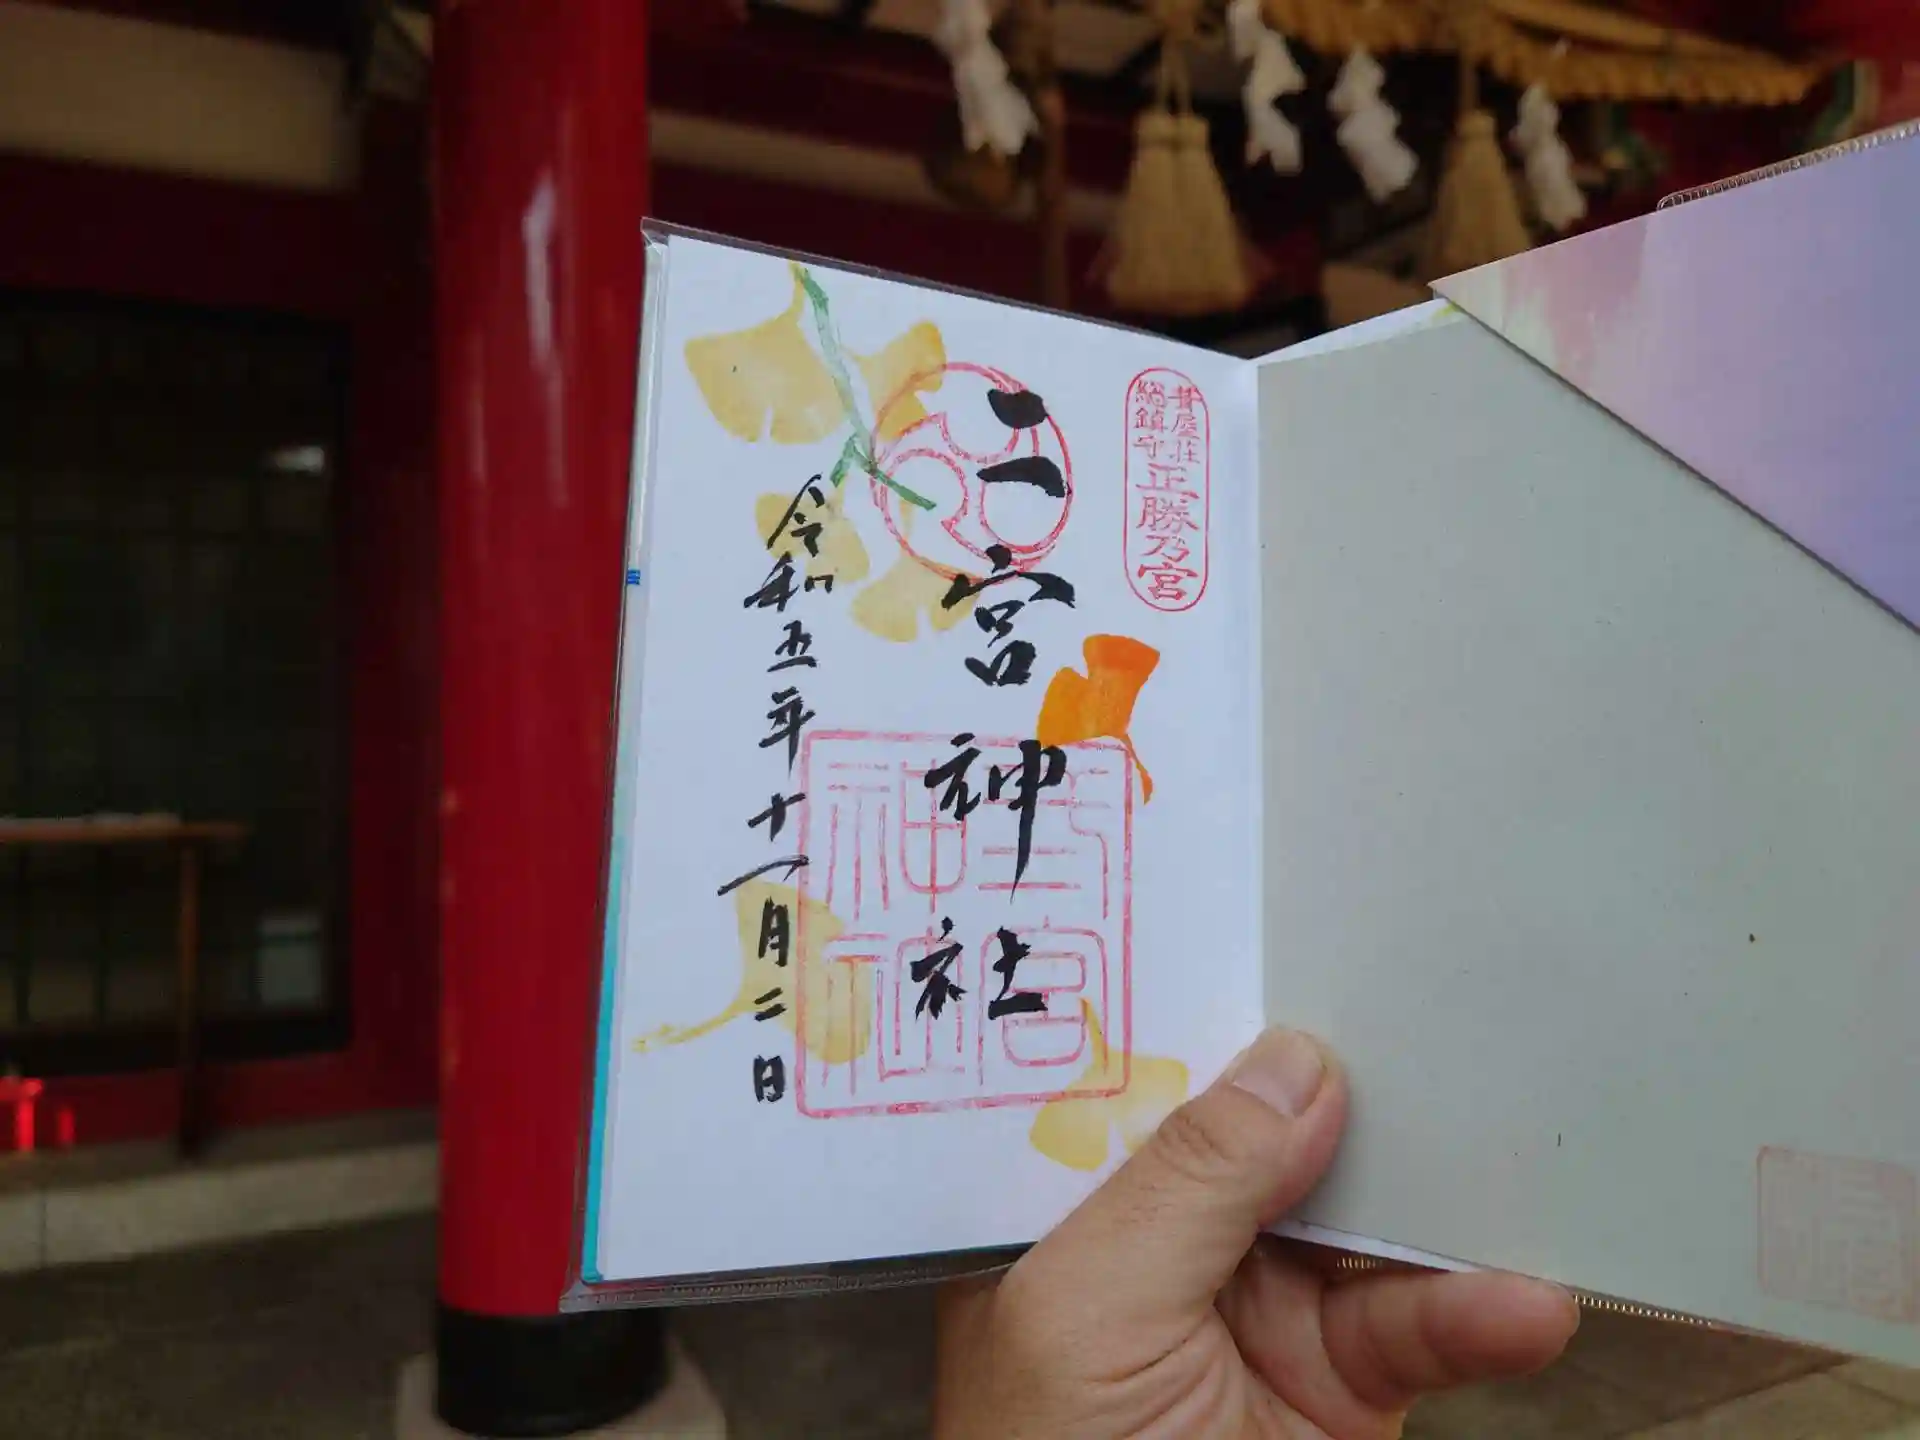 葺屋荘
総鎮守
正勝乃宮
二宮神社
令和五年十一月二日
弍宮神社